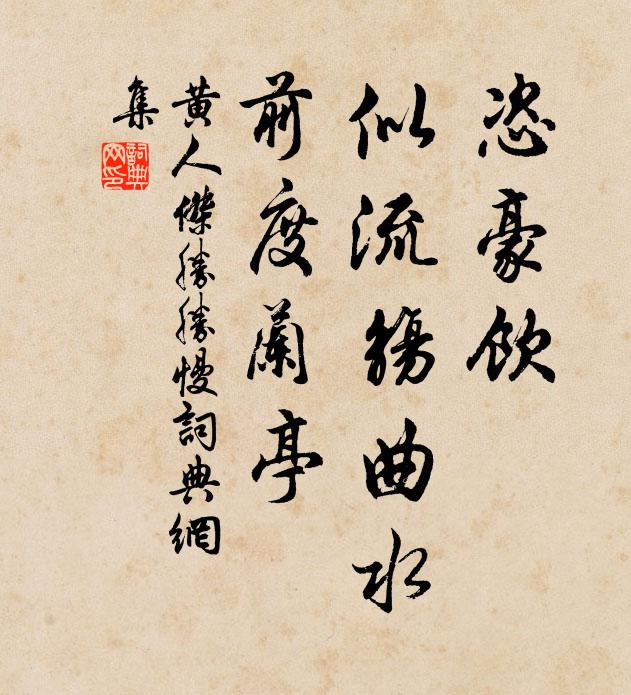 恣豪飲
似流觴曲水
前度蘭亭
黄人傑勝勝慢詞典網
集
詞典
网印